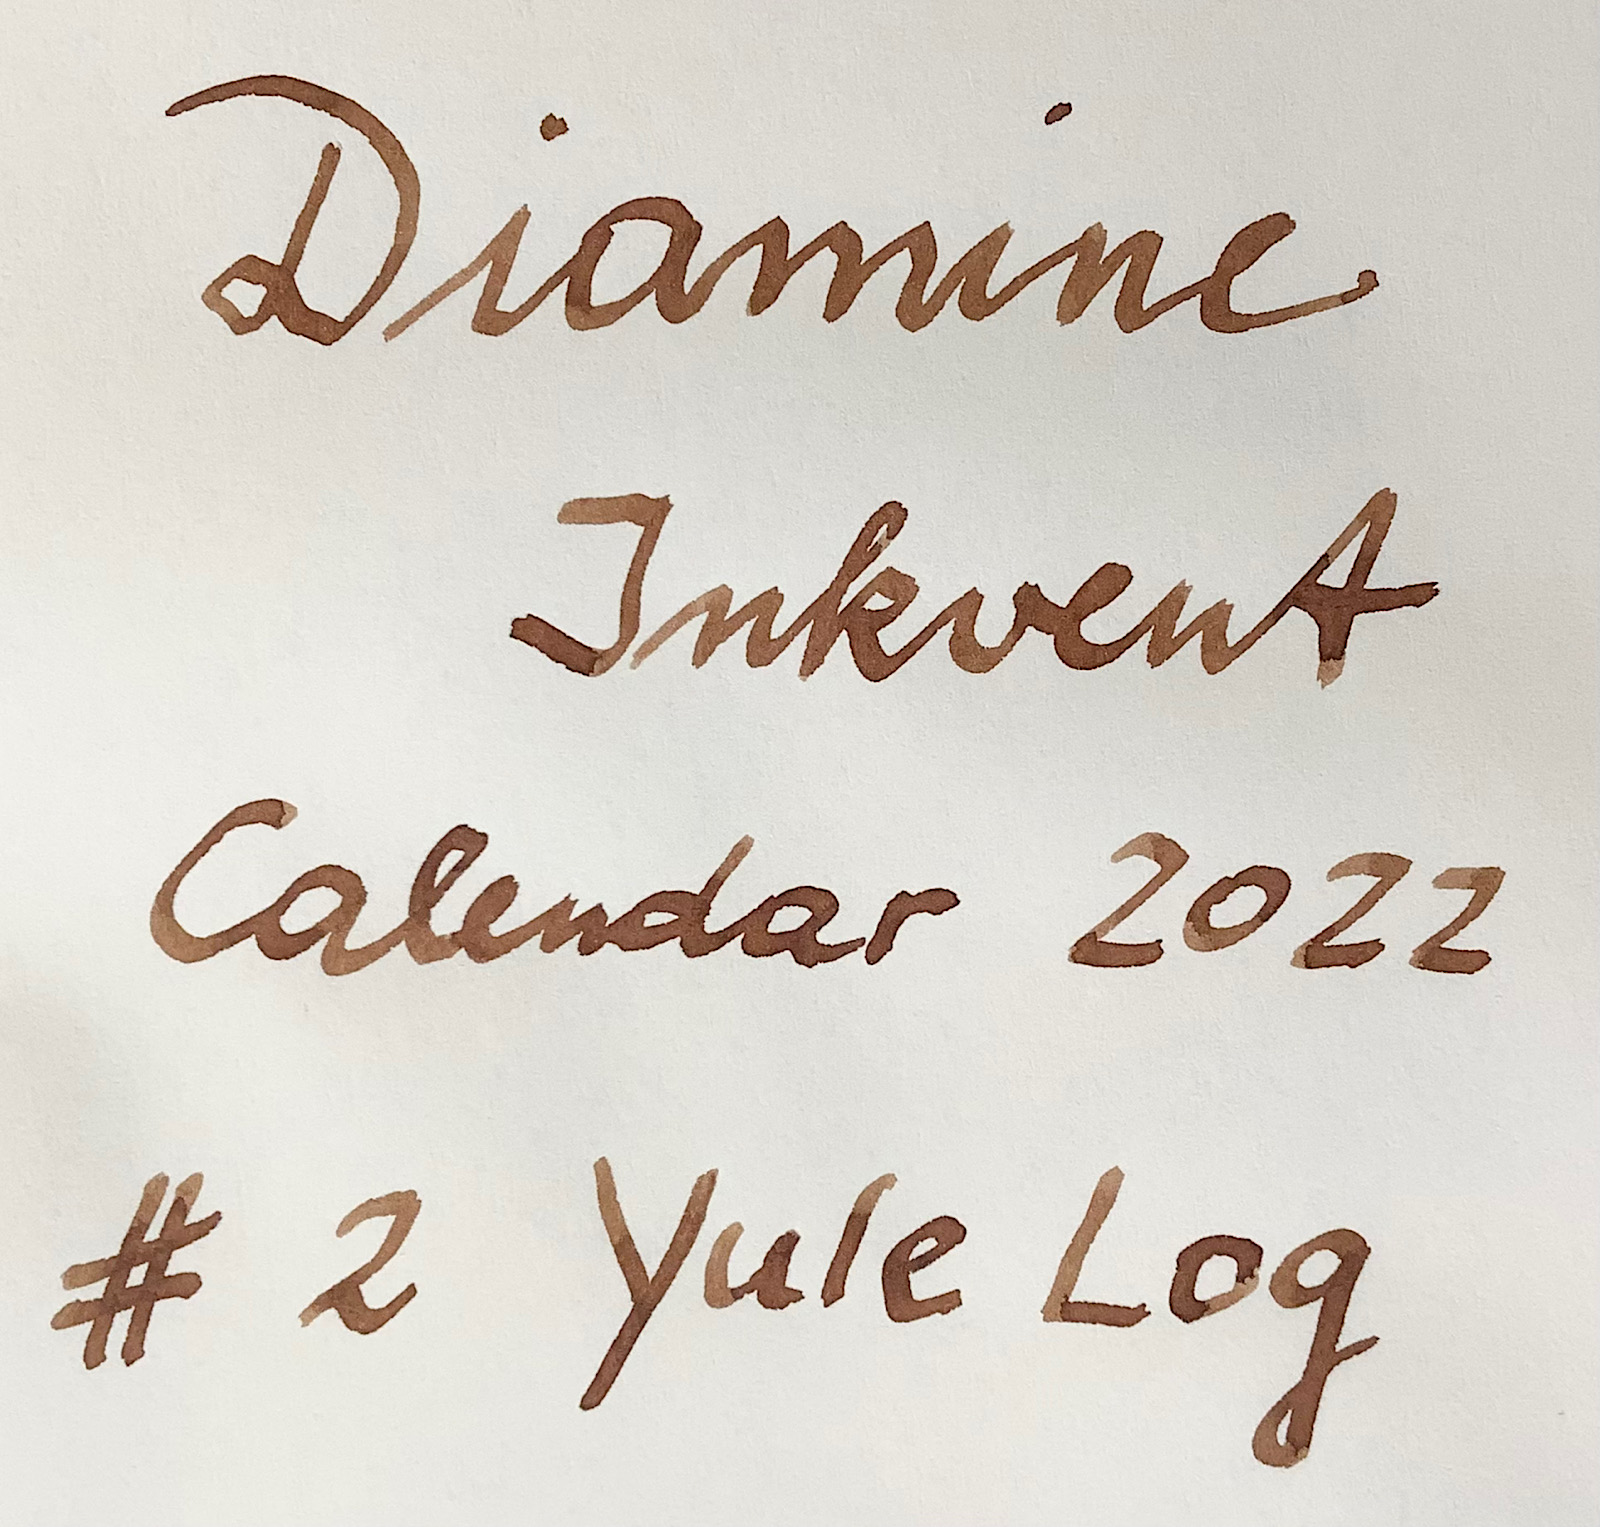 Diamine
Inkvent
Calendar 2022
# 2 Yule Log